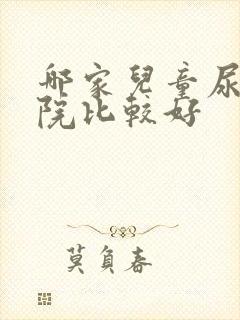 哪家兒童尿
院比較好
莫負春